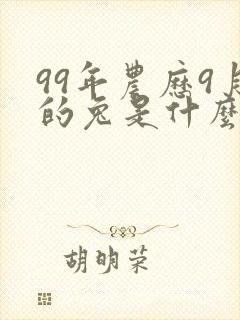 99年農歷9月
的兔是什麼
胡明荣